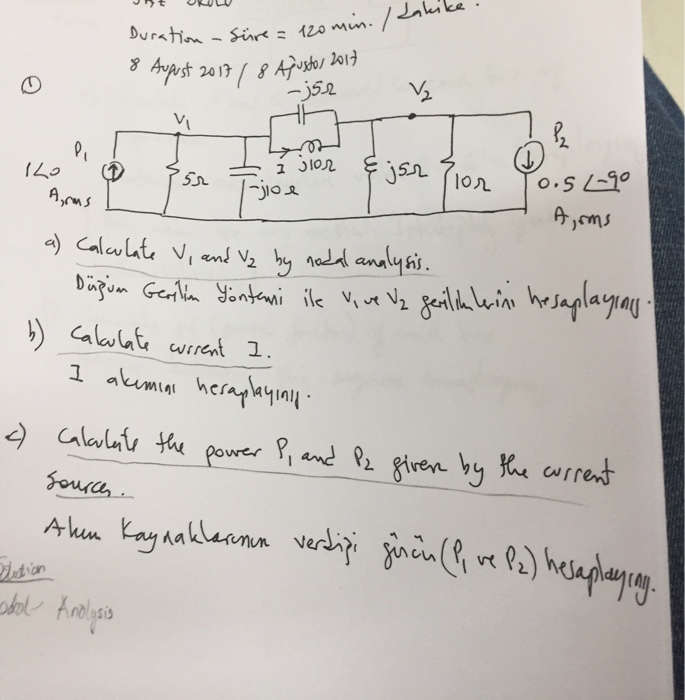 Duration - Süre = 120 min. / dakika.
8 August 2017 / 8 Ağustos 2017
①
-j5Ω
V1
V2
P1
1∠0
A,rms
5Ω
-j10Ω
I
j10Ω
j5Ω
10Ω
P2
0.5∠-90
A,rms
a) Calculate V1 and V2 by nodal analysis.
Düğüm Gerilim Yöntemi ile V1 ve V2 gerilimlerini hesaplayınız.
b) Calculate current I.
I akımını hesaplayınız.
c) Calculate the power P1 and P2 given by the current
Sources.
Akım Kaynaklarının verdiği gücün (P1 ve P2) hesaplayınız.
Analysis